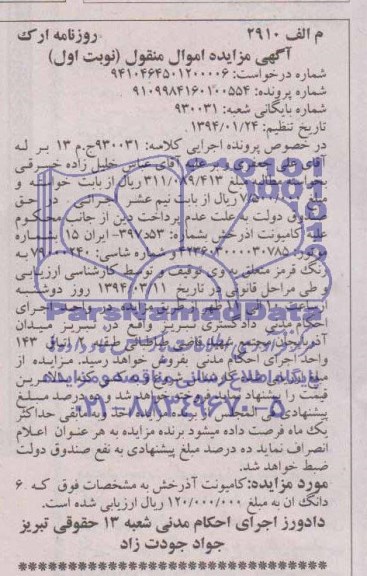 م الف ۲۹۱۰ روزنامه ارک
آگهی مزایده اموال منقول (نوبت اول)
شماره درخواست: ۹۴۱۰۴۶۴۵۰۱۲۰۰۰۰۶
شماره پرونده: ۹۱۰۹۹۸۴۱۶۰۱۰۰۵۵۴
شماره بایگانی شعبه: ۹۳۰۰۳۱
تاریخ تنظیم: ۱۳۹۴/۰۱/۲۴
در خصوص پرونده اجرایی کلاسه: ۹۳۰۰۳۱ج.م ۱۳ بر له
آقای علی جعفری و بر علیه آقای عباس خلیل زاده خیرقی
مبلغ ۳۱۱/۰۸۹/۴۱۳ ریال از بابت خواسته و
ریال از بابت نیم عشر اجرائی در حق
صندوق دولت به علت عدم پرداخت دین از جانب محکوم
علیه کامیونت آذرخش بشماره: ۵۳د۳۹۷- ایران ۱۵ بشماره
موتور: و شماره شاسی:
رنگ قرمز متعلق به وی توقیف و توسط کارشناسی ارزیابی
و طی مراحل قانونی در تاریخ ۱۳۹۴/۰۳/۱۱ روز دوشنبه
از ساعت اجرای
احکام مدنی دادگستری تبریز واقع در تبریز میدان
آذربایجان مجتمع قضایی طبقه ۲ اتاق ۱۴۳
واحد اجرای احکام مدنی بفروش خواهد رسید. مزایده از
قیمت را پیشنهاد نماید فروخته خواهد شد و ده درصد مبلغ
پیشنهادی فی المجلس از برنده مزایده اخذ و مابقی حداکثر
یک ماه فرصت داده میشود برنده مزایده به هر عنوان اعلام
انصراف نماید ده درصد مبلغ پیشنهادی به نفع صندوق دولت
ضبط خواهد شد.
مورد مزایده: کامیونت آذرخش به مشخصات فوق که ۶
دانگ آن به مبلغ ۱۲۰/۰۰۰/۰۰۰ ریال ارزیابی شده است.
دادورز اجرای احکام مدنی شعبه ۱۳ حقوقی تبریز
جواد جودت زاد
ParsNamadData
پایگاه اطلاع رسانی مناقصه و مزایده
۰۲۱-۸۸۳۴۹۶۷۰-۵